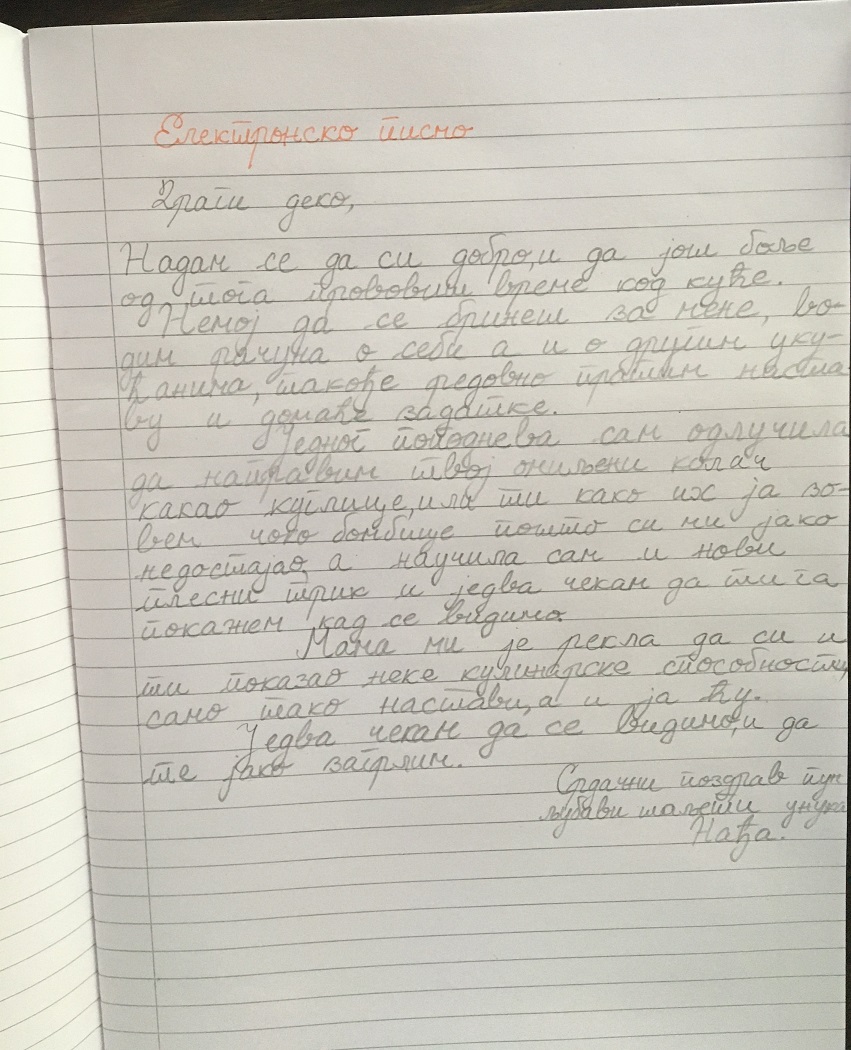 Електронско писмо
Драги деко,
Надам се да си добро, и да још боље
од тога проводиш време код куће.
Немој да се бринеш за мене, во-
дим рачуна о себи а и о другим уку-
ћанима, такође редовно пратим наста
ву и домаће задатке.
Једног поподнева сам одлучила
да направим твој омиљени колач
какао куглице, или ти како их ја зо-
вем чоко бомбице пошто си ми јако
недостајао, а научила сам и нови
плесни трик и једва чекам да ти га
покажем кад се видимо.
Мама ми је рекла да си и
ти показао неке кулинарске способности,
само тако настави, а и ја ћу.
Једва чекам да се видимо, и да
те јако загрлим.
Срдачни поздрав пун
љубави шаље ти унука
Нађа.